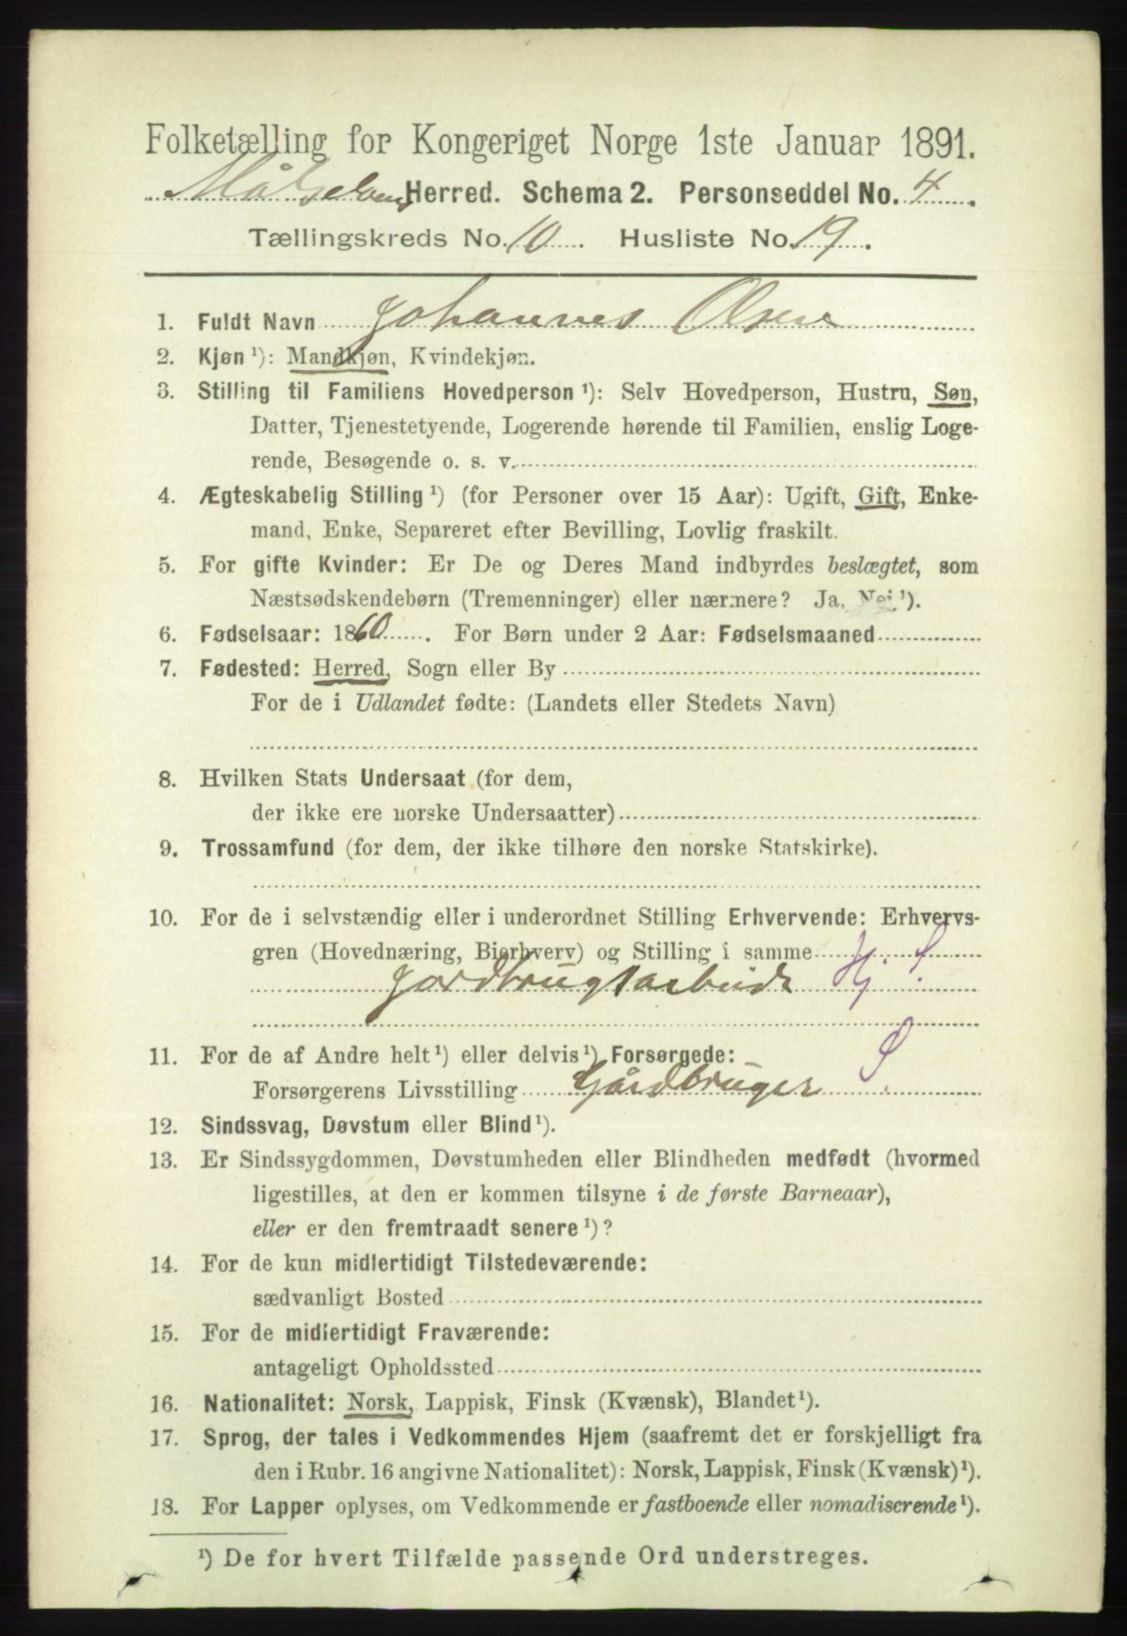 Folketælling for Kongeriget Norge 1ste Januar 1891.
Målselvens Herred. Schema 2. Personseddel No. 4.
Tællingskreds No. 10. Husliste No. 19.
1. Fuldt Navn Johannes Olsen
2. Kjøn ¹): Mandkjøn, Kvindekjøn.
3. Stilling til Familiens Hovedperson ¹): Selv Hovedperson, Hustru, Søn,
Datter, Tjenestetyende, Logerende hørende til Familien, enslig Loge-
rende, Besøgende o. s. v.
4. Ægteskabelig Stilling ¹) (for Personer over 15 Aar): Ugift, Gift, Enke-
mand, Enke, Separeret efter Bevilling, Lovlig fraskilt.
5. For gifte Kvinder: Er De og Deres Mand indbyrdes beslægtet, som
Næstsødskendebørn (Tremenninger) eller nærmere? Ja, Nei ¹).
6. Fødselsaar: 1860. For Børn under 2 Aar: Fødselsmaaned
7. Fødested: Herred, Sogn eller By
For de i Udlandet fødte: (Landets eller Stedets Navn)
8. Hvilken Stats Undersaat (for dem,
der ikke ere norske Undersaatter)
9. Trossamfund (for dem, der ikke tilhøre den norske Statskirke).
10. For de i selvstændig eller i underordnet Stilling Erhvervende: Erhvervs-
gren (Hovednæring, Bierhverv) og Stilling i samme
Jordbrugsarbeide Hj. S.
11. For de af Andre helt ¹) eller delvis ¹) Forsørgede:
Forsørgerens Livsstilling Gårdbruger S.
12. Sindssvag, Døvstum eller Blind ¹).
13. Er Sindssygdommen, Døvstumheden eller Blindheden medfødt (hvormed
ligestilles, at den er kommen tilsyne i de første Barneaar),
eller er den fremtraadt senere ¹)?
14. For de kun midlertidigt Tilstedeværende:
sædvanligt Bosted
15. For de midlertidigt Fraværende:
antageligt Opholdssted
16. Nationalitet: Norsk, Lappisk, Finsk (Kvænsk), Blandet ¹).
17. Sprog, der tales i Vedkommendes Hjem (saafremt det er forskjelligt fra
den i Rubr. 16 angivne Nationalitet): Norsk, Lappisk, Finsk (Kvænsk) ¹).
18. For Lapper oplyses, om Vedkommende er fastboende eller nomadiserende ¹).
¹) De for hvert Tilfælde passende Ord understreges.